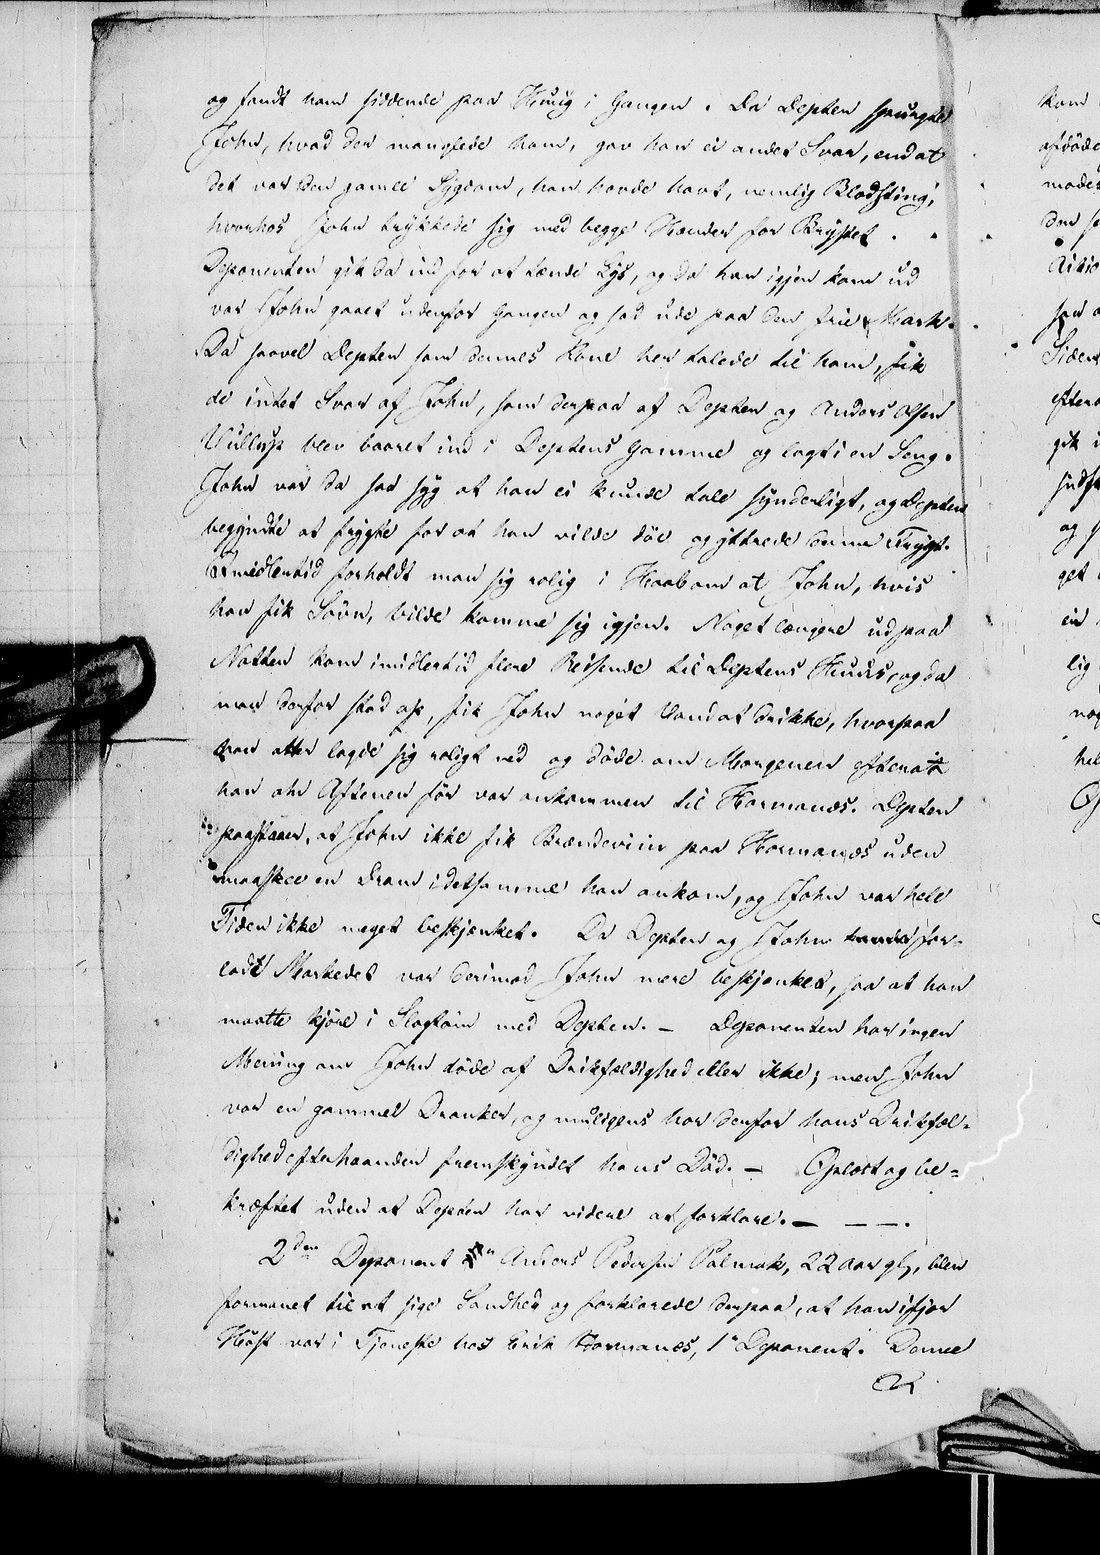 og fandt ham siddende paa Huug i Gangen. Da Depten spurgte
John, hvad der manglede ham, gav han ei andet Svar, end at
det var den gamle Sygdom, han havde havt, nemlig Blodsting,
hvorhos John trykkede sig med begge Hænder for Brystet.
Deponenten gik da ind for at tænde Lys, og da han igjen kom ud
var John gaaet udenfor Gangen og sad ude paa den frie Mark.
Da saavel Depten som dennes Kone her talede til ham, fik
de intet Svar af John, som derpaa af Depten og Anders Olsen
blev baaret ind i Deptens Gamme og lagt i en Seng.
John var da saa syg at han ei kunde tale synderligt, og Depten
begyndte at frygte for at han vilde döe og yttrede denne Frygt.
Imidlertid forholdt man sig rolig i Haab om at John, hvis
han fik Sövn, vilde komme sig igjen. Noget længere ud paa
Natten kom imidlertid flere Reisende til Deptens Huus, og da
man derfor stod op, fik John noget Vand at drikke, hvorpaa
han atter lagde sig roligt ned og döde om Morgenen efterat
han om Aftenen för var ankommen til Hormanæs. Depten
paastaaer, at John ikke fik Brændeviin paa Hormanæs uden
maaskee en Dram i detsamme han ankom, og John var hele
Tiden ikke meget beskjænket. Da Depten og John for-
lode Markedet var derimod John mere beskjænket, saa at han
maatte kjöre i Slagtöin med Depten. — Deponenten har ingen
Mening om John döde af Drikfældighed eller ikke; men John
var en gammel Dranker, og muligens har derfor hans Drikfæl-
dighed efterhaanden fremskyndet hans Död. — Oplæst og be-
kræftet uden at Depten har videre at forklare. — — —.
2den Deponent Anders Pedersen Palmak, 22 aar gl, blev
formanet til at sige Sandhed og forklarede derpaa, at han ifjor
Höst var i Tjeneste hos Erik Hormanæs, 1e Deponent. Denne